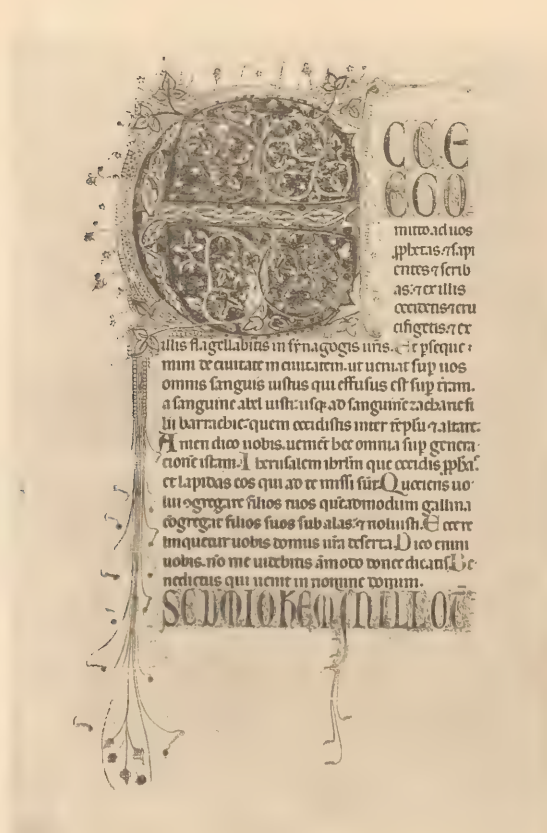 ECCE
EGO
mitto. ad uos
ꝓphetas. ⁊ sapi
entes ⁊ scrib
as: ⁊ ex illis
occidetis ⁊ cru
cifigetis: ⁊ ex
illis flagellabitis in synagogis uris. Et pseque
mini de ciuitate in ciuitatem. ut ueniat sup uos
omnis sanguis iustus qui effusus est sup tram.
a sanguine abel iusti: usq; ad sanguinē zacharie fi
lii barrachie: quem occidistis inter tēplū ⁊ altare.
Amen dico uobis. uenīēt hec omnia sup genera
cionē istam. Iherusalem ihrlm que occidis ꝓphas.
et lapidas eos qui ad te missi sūt. Quociens uo
lui ꝯgregare filios tuos quēadmodum gallina
cōgregat filios suos sub alas: ⁊ noluisti. Ecce re
linquetur uobis domus ura deserta. Dico enim
uobis. nō me uidebitis āmodo donec dicatis. Be
nedictus qui uenit in nomine domini.
SEDMIOHEM IN ILLO T̄